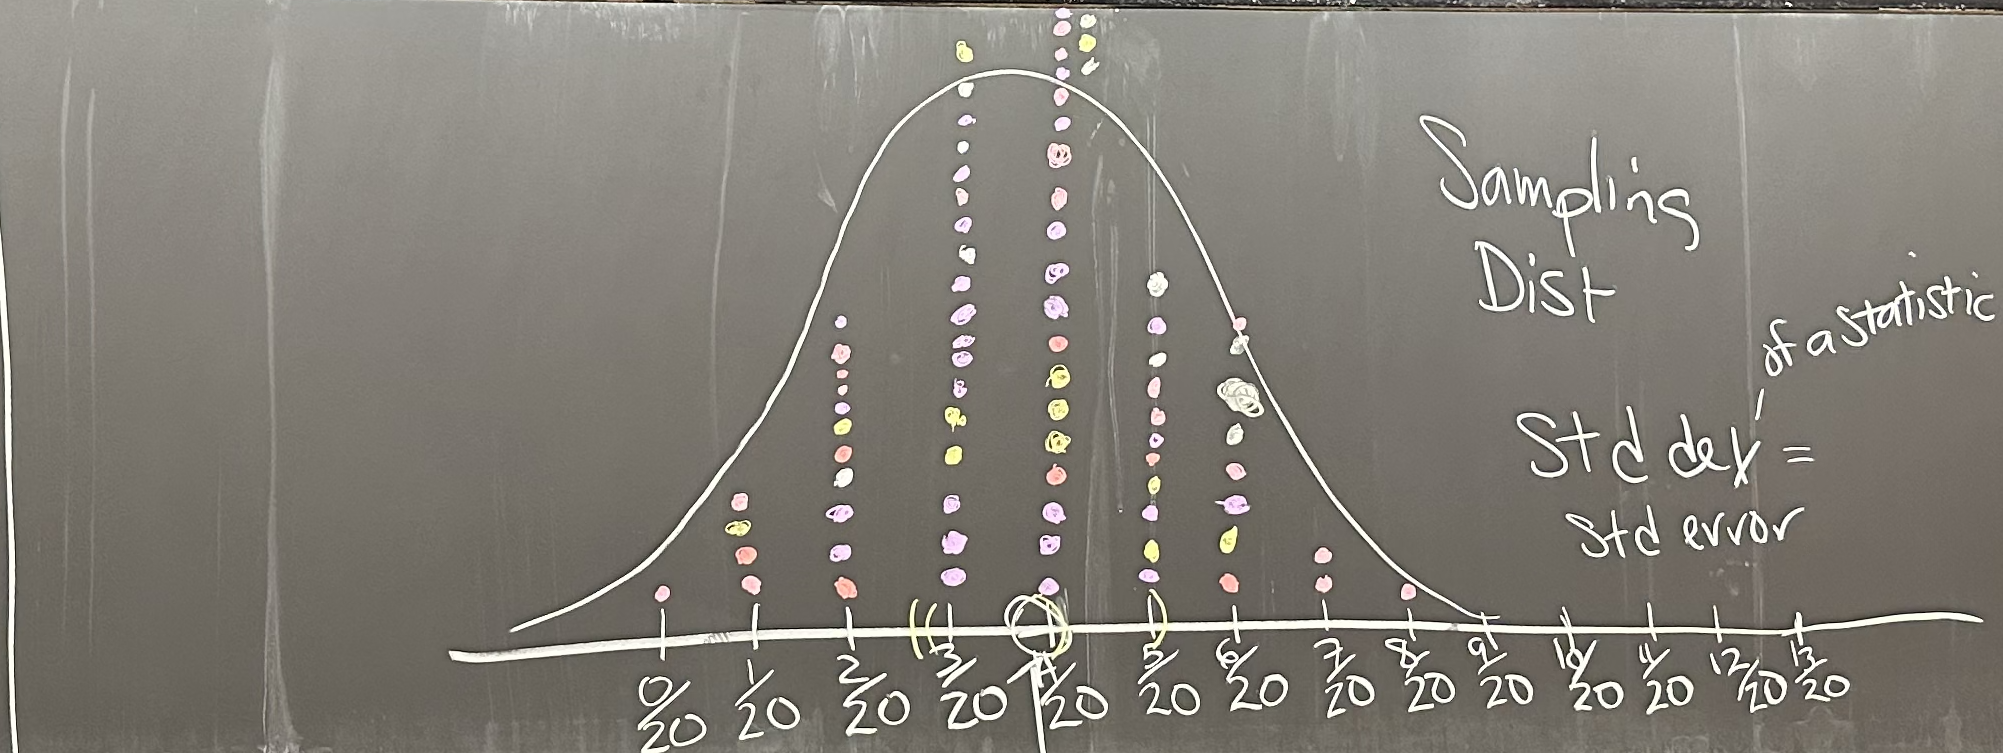 Sampling
Dist
of a statistic
Std dev =
std error
0/20 1/20 2/20 3/20 4/20 5/20 6/20 7/20 8/20 9/20 10/20 11/20 12/20 13/20